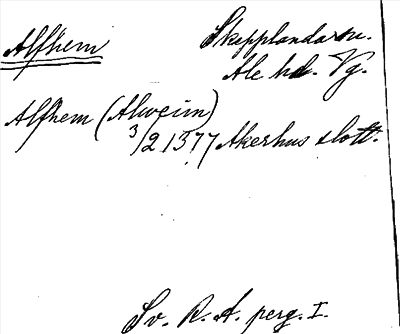 Alfhem
Skepplanda sn.
Ale hd. Vg.
Alfhem (Alweim)
3/2 1377 Akershus slott.
Sv. R. A. perg. I.